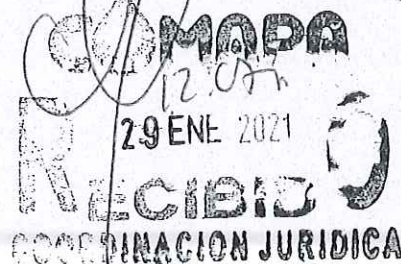 OMAPA
29 ENE 2021
RECIBIDO
COORDINACION JURIDICA